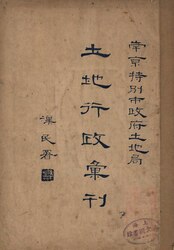 南京特別市政府土地局
土地行政彙刊